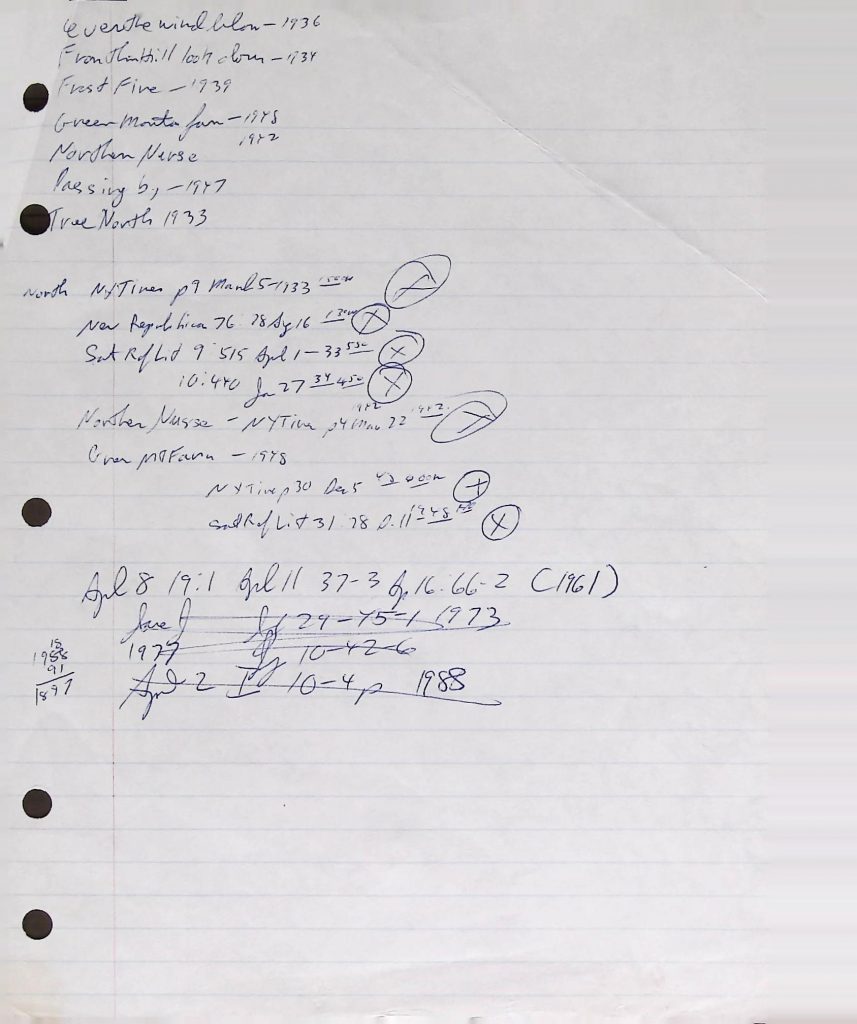 Ever the wind blow – 1936
From that Hill look down – 1934
Frost Fire – 1939
Green Mounta farm – 1948
1942
Northern Nurse
Passing by – 1947
True North 1933
North NYTimes p9 March 5 – 1933
New Republic 76: 28 Ag 16
Sat Rof Lit 9 515 Apl 1 – 33 550
10:440 Ja 27 34 450
Northern Nurse – NYTimes p4 Mar 22 1942
Green Mt Farm – 1948
NYTimes p30 Dec 5
Sat Rof Lit 31 : 28 D. 11 1948
Apl 8 19:1 Apl 11 37-3 Ap 16. 66-2 (1961)
June 29-45-1 1973
1977 10-42-6
April 2 I 10-4 p 1988
18
1988
91
1897